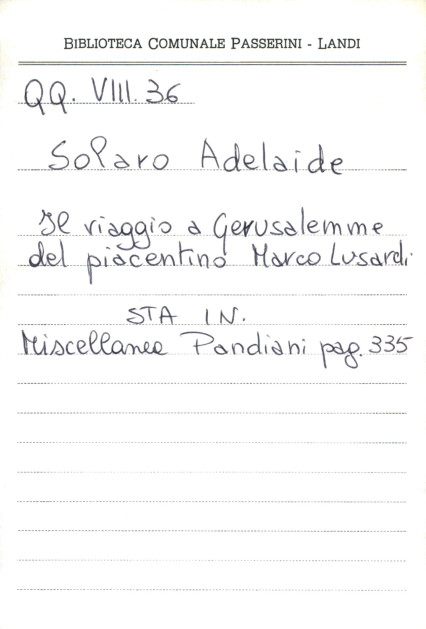 BIBLIOTECA COMUNALE PASSERINI - LANDI
QQ. VIII. 36
Solaro Adelaide
Il viaggio a Gerusalemme
del piacentino Marco Lusardi
STA IN.
Miscellanee Pandiani pag. 335